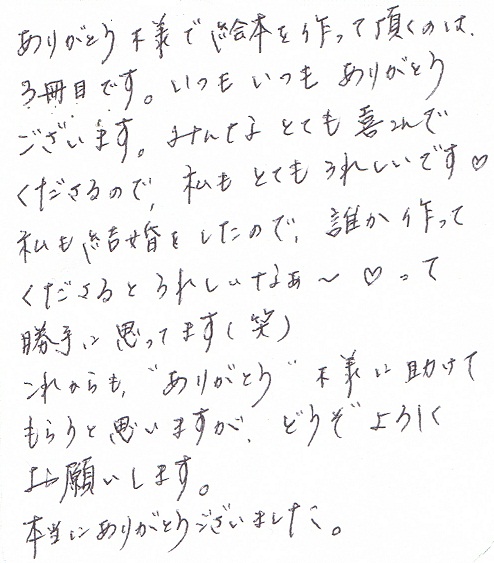 ありがとう木様で絵本を作って頂くのは、
3冊目です。いつもいつもありがとう
ございます。みんなとても喜んで
くださるので、私もとてもうれしいです♡
私も結婚をしたので、誰か作って
くださるとうれしいなぁ〜♡って
勝手に思ってます(笑)
これからも、“ありがとう”木様に助けて
もらうと思いますが、どうぞよろしく
お願いします。
本当にありがとうございました。